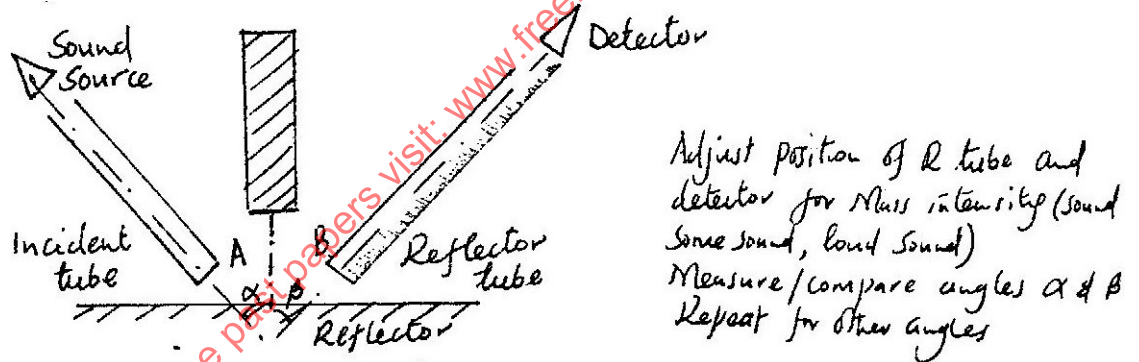 Sound
Source
Detector
Incident
tube
A
B
Reflector
tube
α
β
Reflector
Adjust position of R tube and
detector for Mass intensity (sound
Some sound, loud sound)
Measure/compare angles α & β
Repeat for other angles
e past papers visit: www.free